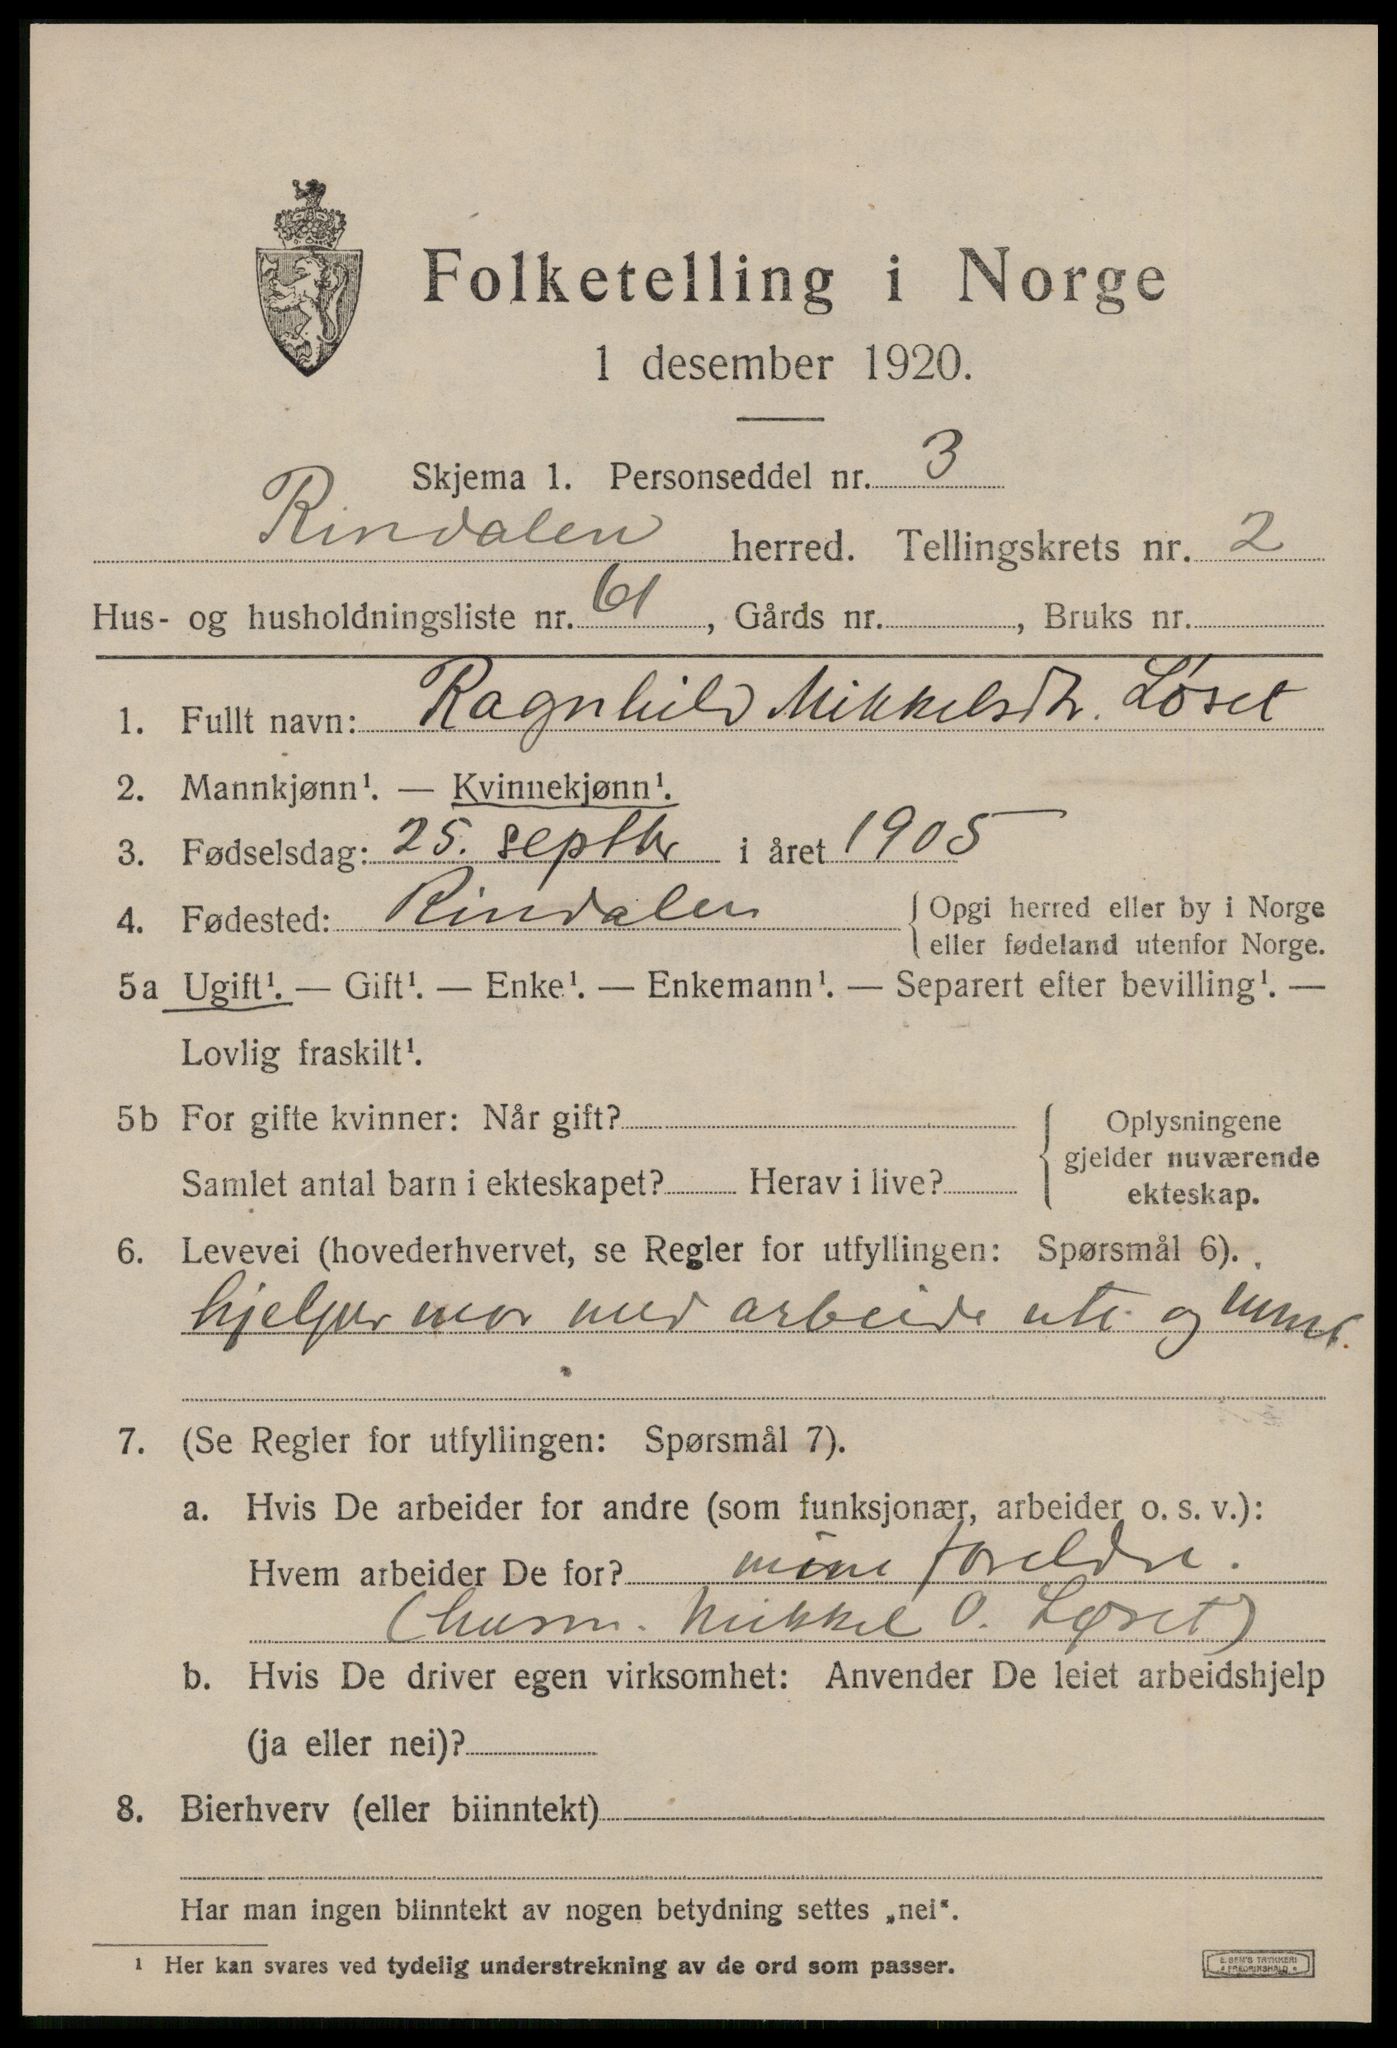 Folketelling i Norge
1 desember 1920.
Skjema 1. Personseddel nr. 3
Rindalen herred. Tellingskrets nr. 2
Hus- og husholdningsliste nr. 61, Gårds nr. , Bruks nr.
1. Fullt navn: Ragnhild Mikkelsdtr. Løset
2. Mannkjønn¹. — Kvinnekjønn¹.
3. Fødselsdag: 25. septbr i året 1905
4. Fødested: Rindalen { Opgi herred eller by i Norge
eller fødeland utenfor Norge.
5a Ugift¹. — Gift¹. — Enke¹. — Enkemann¹. — Separert efter bevilling¹. —
Lovlig fraskilt¹.
5b For gifte kvinner: Når gift? { Oplysningene
gjelder nuværende
Samlet antal barn i ekteskapet? Herav i live? ekteskap.
6. Levevei (hovederhvervet, se Regler for utfyllingen: Spørsmål 6).
hjelper mor med arbeide ute og inne.
7. (Se Regler for utfyllingen: Spørsmål 7).
a. Hvis De arbeider for andre (som funksjonær, arbeider o. s. v.):
Hvem arbeider De for? mine foreldre.
(husm. Mikkel O. Løset)
b. Hvis De driver egen virksomhet: Anvender De leiet arbeidshjelp
(ja eller nei)?
8. Bierhverv (eller biinntekt)
Har man ingen biinntekt av nogen betydning settes „nei“.
¹ Her kan svares ved tydelig understrekning av de ord som passer.
E. SEM'S TRYKKERI
FREDRIKSHALD